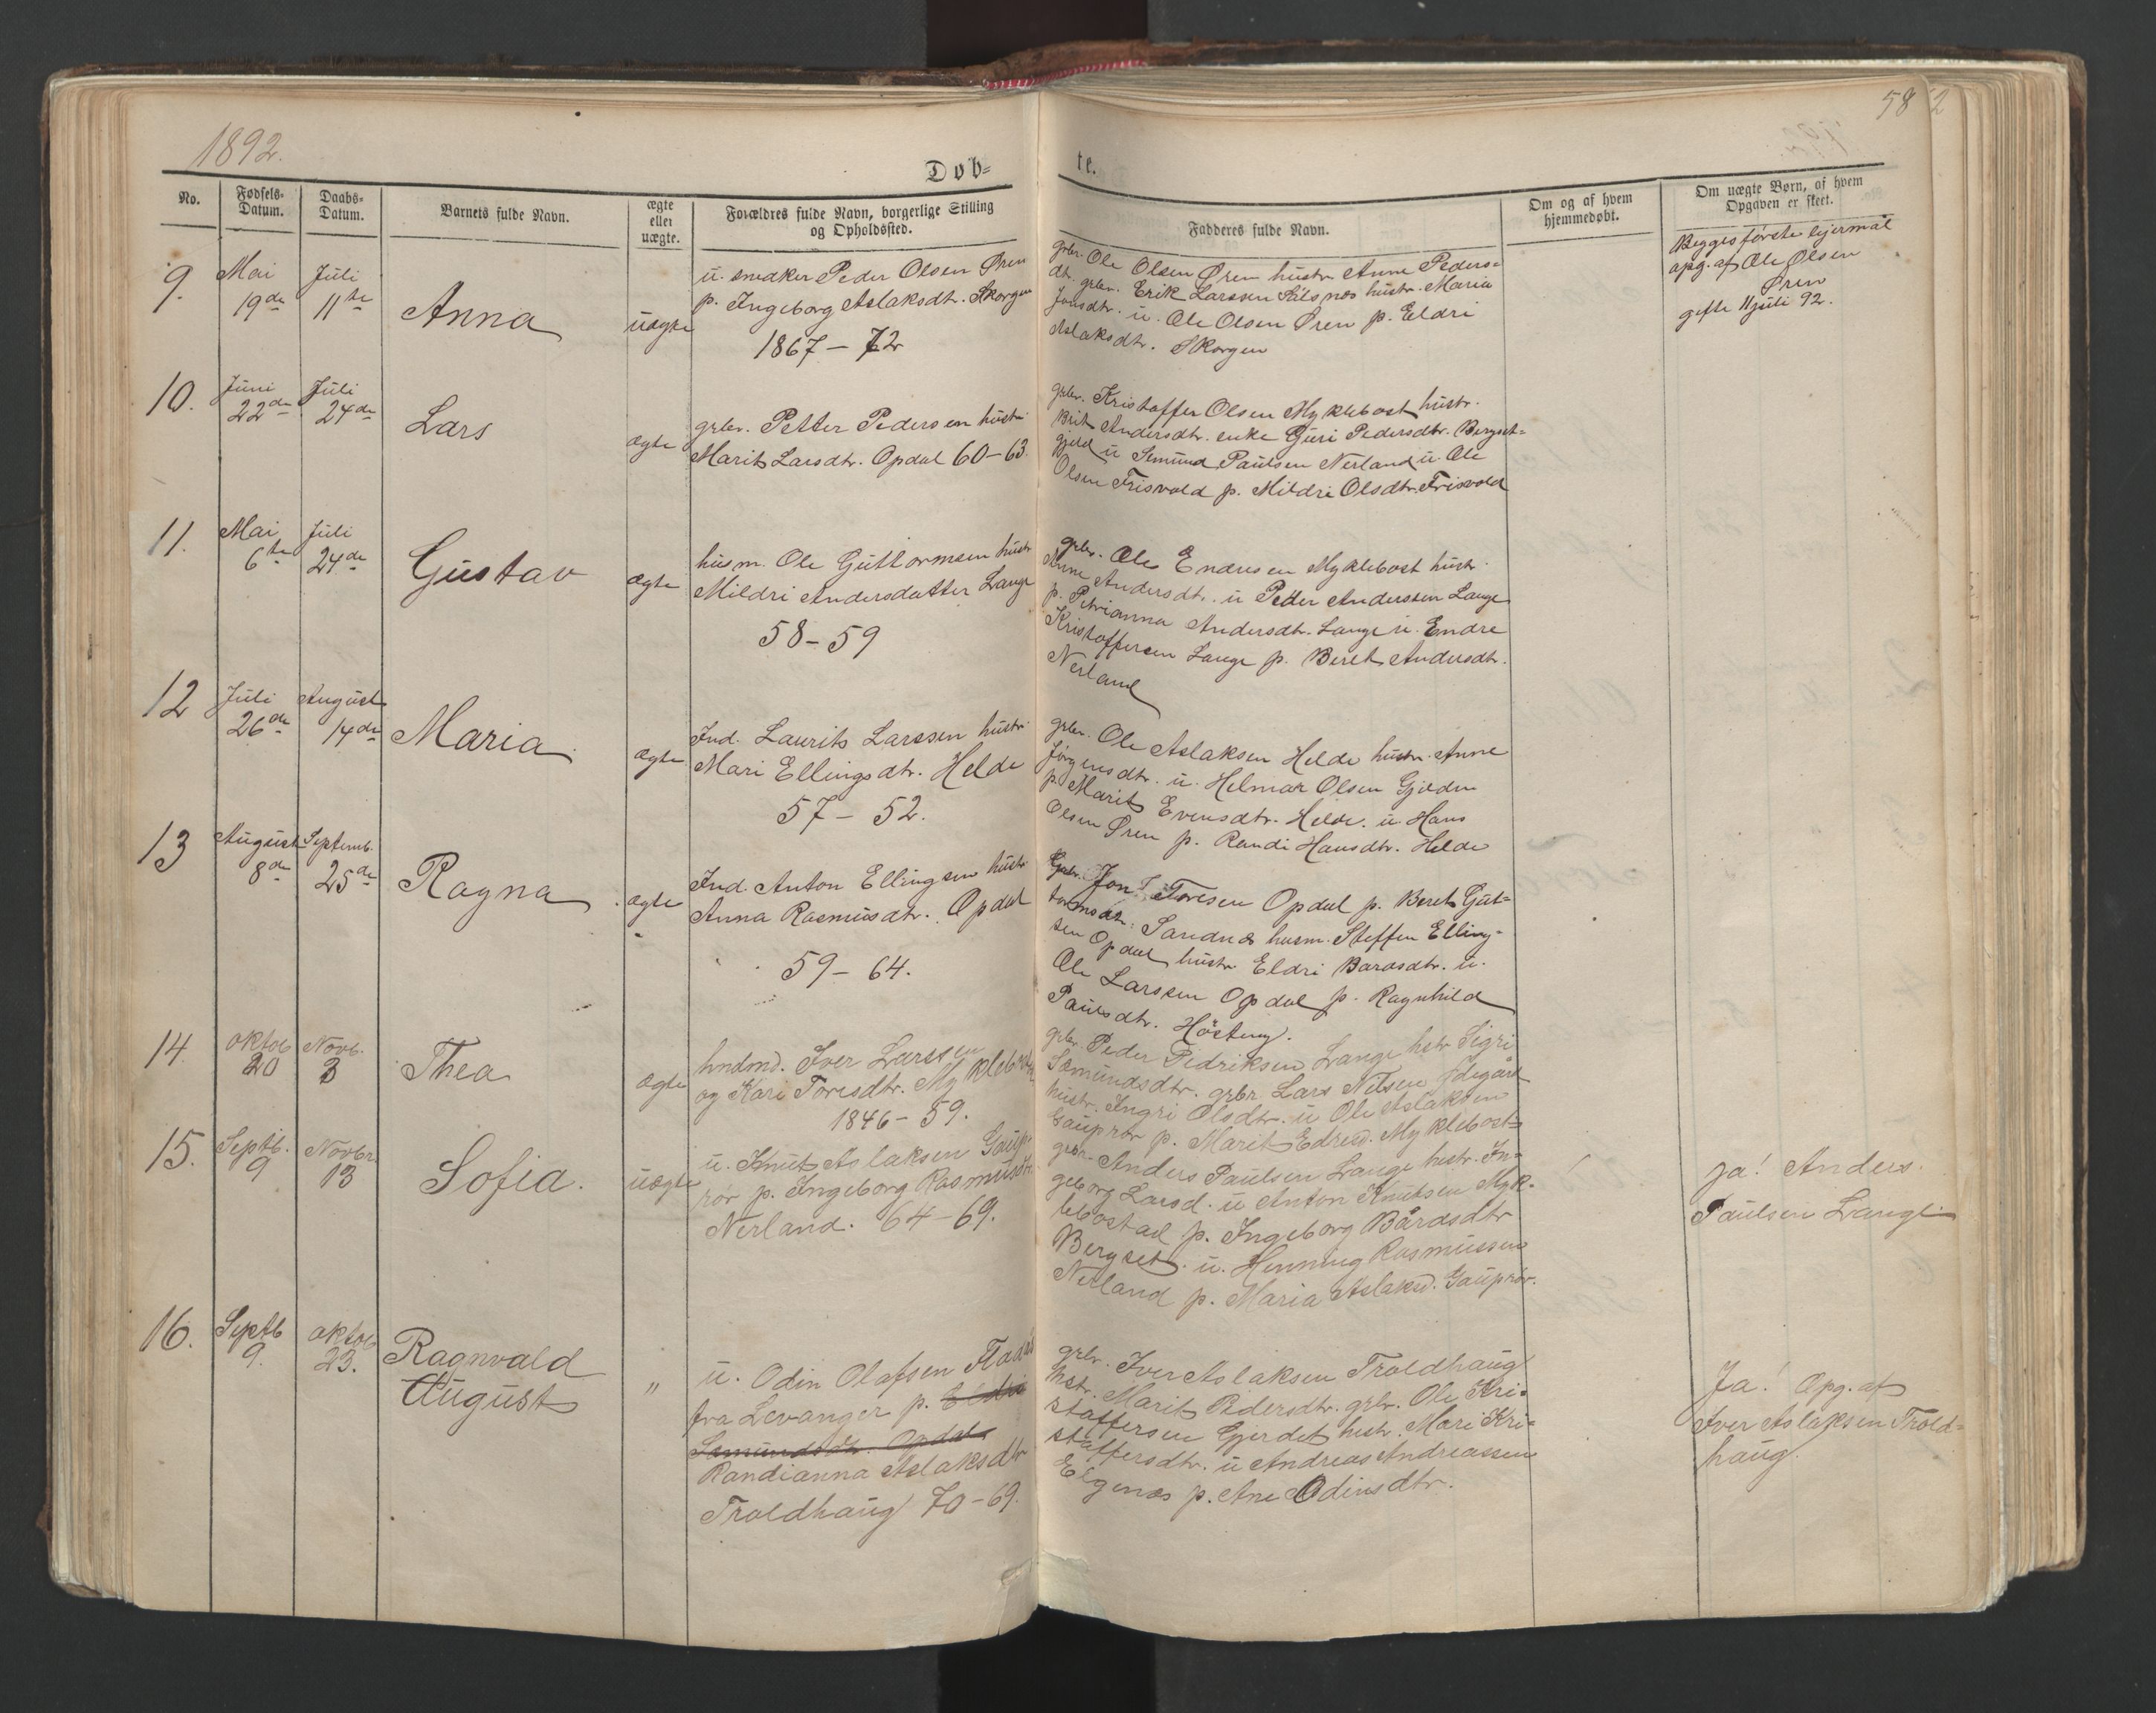 1892.
58
2
Døb-
te.
No.
Fødsels-
Datum.
Daabs-
Datum.
Barnets fulde Navn.
ægte
eller
uægte.
Forældres fulde Navn, borgerlige Stilling
og Opholdssted.
Fadderes fulde Navn.
Om og af hvem
hjemmedøbt.
Om uægte Børn, af hvem
Opgaven er skeet.
9.
Mai
19de
Juli
11te
Anna
uægte
u. snedker Peder Olsen Øren
p. Ingeborg Aslaksdtr. Skorgen
1867 - 72
grbr. Ole Olsen Øren hustr. Anne Peders-
dt. grbr. Erik Larssen hustr. Maria
Jonsdtr. u. Ole Olsen Øren p. Eldri
Aslaksdtr. Skorgen
Begges første leiermål
opg. af Ole Olsen
Øren
gifte 11 juli 92.
10.
Juni
22de
Juli
24de
Lars
ægte
grbr. Petter Pedersen hustr.
Marit Larsdtr. Opdal 60-63.
grbr. Kristoffer Olsen Myklebost hustr.
Brit Andersdtr. enke Guri Pedersdtr. Bergset-
gjeld u Semund Paulsen Nerland u. Ole
Olsen Frisvold p. Mildri Olsdtr. Frisvold
11.
Mai
6te
Juli
24de
Gustav
ægte
husm. Ole Guttormsen hustr
Mildri Andersdatter Lange
58-59
grbr. Ole Endresen Myklebost hustr.
Anne Andersdtr. u Petter Anderssen Lange
p. Petrianna Andersdtr. Lange u. Endre
Kristoffersen Lange p. Beret Andersdtr.
Nerland
12
Juli
26de
August
14de
Maria
ægte
Ind. Laurits Larssen hustr.
Mari Ellingsdtr. Helde
57 - 52.
grbr. Ole Aslaksen Helde hustr. Anne
Jørgensdtr. u. Helmar Olsen Gjelden
p. Marit Evensdtr. Helde. u. Hans
Olsen Øren p. Randi Hansdtr. Helde
13
August
8de
Septemb.
25de
Ragna
ægte
Ind. Anton Ellingsen hustr.
Anna Rasmusdtr. Opdal
59 - 64.
Grbr. Jon Toresen Opdal p. Beret Gut-
tormsdtr. Sandnes husm. Steffen Elling-
sen Opdal hustr Eldri Bardsdtr. u.
Ole Larssen Opdal p. Ragnhild
Paulsdtr. Hösteng.
14.
oktob
20
Novb.
3
Thea
ægte
Iver Larssen
og Kari Toresdtr. Myklebost
1846 - 59.
grbr. Peder Pedriksen Lange hstr Sigri
Sæmundsdtr. grbr. Lars Nilsen Ødegård
hustr. Ingri Olsdtr. u Ole Aslaksen
Gauprør p. Marit Edresd. Myklebost
15.
Septb.
9
Novbr.
13
Sofia.
uægte
u. Knut Aslaksen Gaup-
rør p. Ingeborg Rasmusdtr
Nerland. 64-69.
grbr. Anders Paulsen Lange hustr. In-
geborg Larsd. u Anton Knutsen Myk-
lebostad p. Ingeborg Bårdsdtr
Bergset. u. Henning Rasmussen
Nerland p. Maria Aslaksd. Gauprør.
Ja! Anders
Paulsen Lange
16.
Septb
9.
oktob
23.
Ragnvald
August
"
u. Odin Olafsen
fra Levanger p. Eldri
Semundsdtr. Opdal
Randianna Aslaksdtr
Troldhaug 70-69.
grbr. Iver Aslaksen Troldhaug
hstr. Marit Pedersdtr. grbr. Ole Kri-
stoffersen Gjerdet hustr. Mari Kri-
stoffersdtr. u Andreas Andreassen
Elgenæs p. Ane Odinsdtr.
Ja! Opg. af
Iver Aslaksen Trold-
haug.